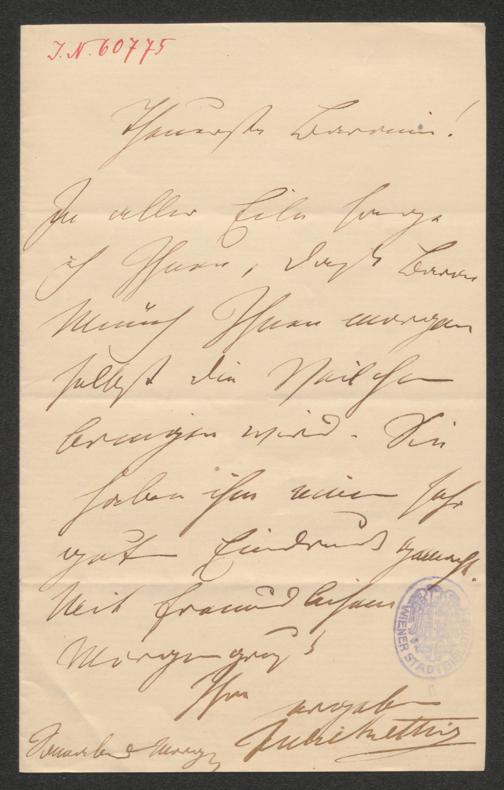 J.N. 60775
Theuerste Baronin!
In aller Eile sage
ich Ihnen, daß Baron
Münch Ihnen morgen
selbst die Veilchen
bringen wird. Sie
haben ihm einen sehr
guten Eindruck gemacht.
Mit freundlichem
Morgengruß
Ihre ergebene
Julie Rettich
Sonnabend Morgen
WIENER STADTBIBLIOTHEK